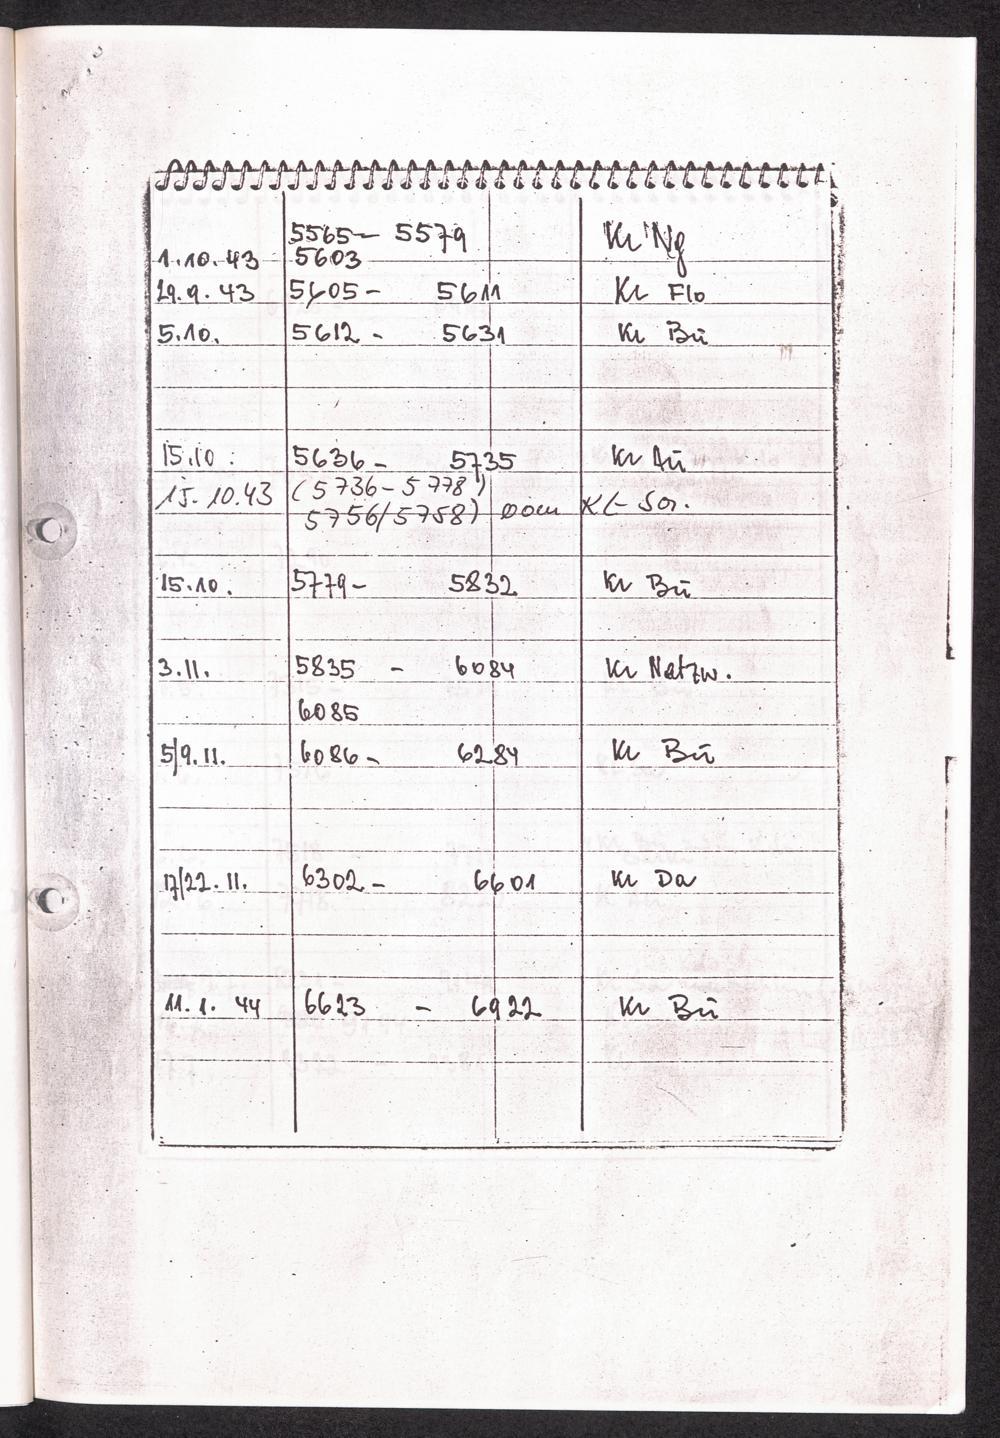 5565 - 5579 Kl Ng
1.10.43 5603
29.9.43 5605 - 5611 Kl Flo
5.10. 5612 - 5631 Kl Bu
15.10. 5636 - 5735 Kl Au
15.10.43 (5736 - 5778)
5756/5758) vom KL- Sar.
15.10. 5779 - 5832 Kl Bu
3.11. 5835 - 6084 Kl Natzw.
6085
5/9.11. 6086 - 6284 Kl Bu
17/22.11. 6302 - 6601 Kl Da
11.1.44 6623 - 6922 Kl Bu